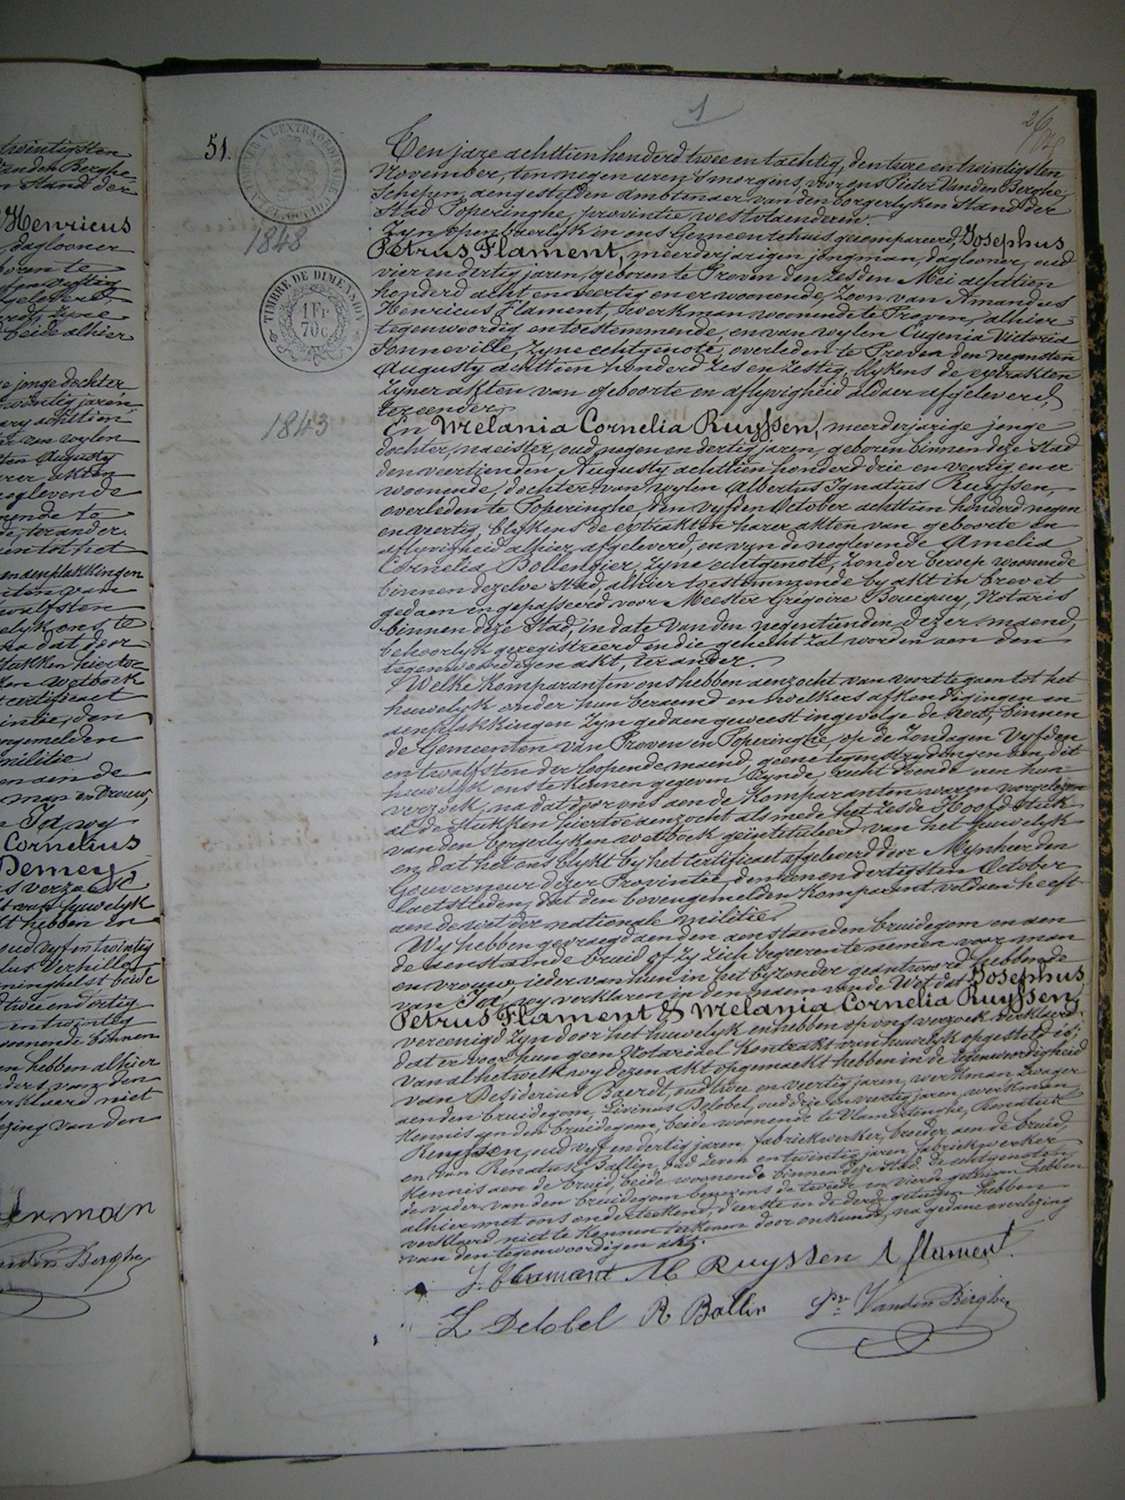 twintigsten
Vanden Berghe
n Stand der
Henricus
daglooner
boren te
beide alhier
ge jonge dochter
twintig jaren,
ary achttien
er van wylen
sten Augusty
akten
neglevende
nende te
de, ter ander.
ien tot het
en aenplakkingen
walfsten
elyk ons te
na dat door
stukken hiertoe
en wetboek
certificaet
intie, den
orgemelden
militie.
en aen de
man en vrouw,
n Ja, wy
Cornelius
Demey
s verzocht
t van huwelyk
kt hebben in
oud vyf en twintig
lus Verhille
ninghelst beide
d twee en dertig
en twintig
woonende binnen
en hebben alhier
ders van den
erklaerd niet
ezing van den
Herman
anden Berghe
1
51.
TIMBRE DE DIMENSION
1 Fr
70 c
1848
1843
Ten jare achttien honderd twee en tachtig, den twee en twintigsten
November, ten negen uren 's morgens, voor ons Pieter Vanden Berghe,
Schepen, aengestelden Ambtenaer van den borgerlyken Stand der
Stad Poperinghe, provintie westvlaenderen.
Zyn openbaerlyk in ons Gemeentehuis gecompareerd, Josephus
Petrus Flament, meerderjarigen jongman, daglooner, oud
vier en dertig jaren, geboren te Proven den zesden Mei achttien
honderd acht en veertig en er woonende, Zoon van Amandus
Henricus Flament, werkman woonende te Proven, alhier
tegenwoordig en toestemmende, en van wylen Eugenia Victoria
Sonneville, zyne echtgenote, overleden te Proven den negensten
Augusty achttien honderd zes en zestig, blykens de extrakten
zyner akten van geboorte en aflyvigheid aldaer afgeleverd,
ter eender.
En Melania Cornelia Ruyssen, meerderjarige jonge
dochter, naeister, oud negen en dertig jaren, geboren binnen deze Stad
den veertienden Augusty achttien honderd drie en veertig en er
woonende, dochter van wylen Albertus Ignatius Ruyssen,
overleden te Poperinghe, den vyfden October achttien honderd negen
en veertig, blykens de extrakten harer akten van geboorte en
aflyvigheid alhier afgeleverd, en van de noglevende Amelia
Cornelia Bollengier, zyne echtgenote, zonder beroep woonende
binnen dezelve Stad, alhier toestemmende by akt in brevet
gedaen en gepasseerd voor Meester Grégoire Boucquey, Notaris
binnen deze Stad, in date van den negentienden dezer maend,
behoorlyk geregistreerd en die gehecht zal worden aen den
tegenwoordigen akt, ter ander.
Welke komparanten ons hebben aenzocht van voort te gaen tot het
huwelyk onder hun beraemd en welkers afkondigingen en
aenplakkingen zyn gedaen geweest ingevolge de wet, binnen
de Gemeenten van Proven en Poperinghe, op de zondagen vyfden
en twalfsten der loopende maend, geene tegenstrydingen aen dit
huwelyk ons te kennen gegeven zynde, recht doende aen hun
verzoek, na dat door ons aen de komparanten waren voorgelezen
al de stukken hiertoe aenzocht als mede het zesde Hoofdstuk
van den borgerlyken wetboek geïntituleerd van het huwelyk
en dat het ons blykt by het certificaet afgeleverd door Mynheer den
Gouverneur dezer Provintie, den een en dertigsten October
laetstleden, dat den bovengemelden komparant voldaen heeft
aen de wet der nationale militie.
Wy hebben gevraegd aen den aenstaenden bruidegom en aen
de aenstaende bruid of zy zich begeeren te nemen voor man
en vrouw, ieder van hun in het byzonder geantwoord hebbende
van Ja, wy verklaren in den naem van de Wet dat Josephus
Petrus Flament & Melania Cornelia Ruyssen,
vereenigd zyn door het huwelyk en hebben op ons verzoek verklaerd
dat er voor hun geen Notariael kontrakt van huwelyk opgesteld is;
van al hetwelk wy dezen akt opgemaekt hebben in de tegenwoordigheid
van Desiderius Baerdt, oud twee en veertig jaren, werkman, Zwager
aen den bruidegom, Livinus Delobel, oud drie en veertig jaren, werkman,
kennis aen den bruidegom, beide woonende te Vlamertinghe, Renatus
Ruyssen, oud vyf en dertig jaren fabriekwerker, broeder aen de bruid,
en van Renatus Ballin, oud zeven en twintig jaren, fabriekwerker
kennis aen de bruid, beide woonende binnen deze stad. de echtgenoten,
de vader van den bruidegom benevens de tweede en vierde getuigen hebben
alhier met ons onderteekend, d'eerste en de derde getuigen hebben
verklaerd niet te kunnen teekenen door onkunde, na gedane voorlezing
van den tegenwoordigen akt.
J. Flamant M C Ruyssen A flament
L Delobel R Ballin Pre Vanden Berghe